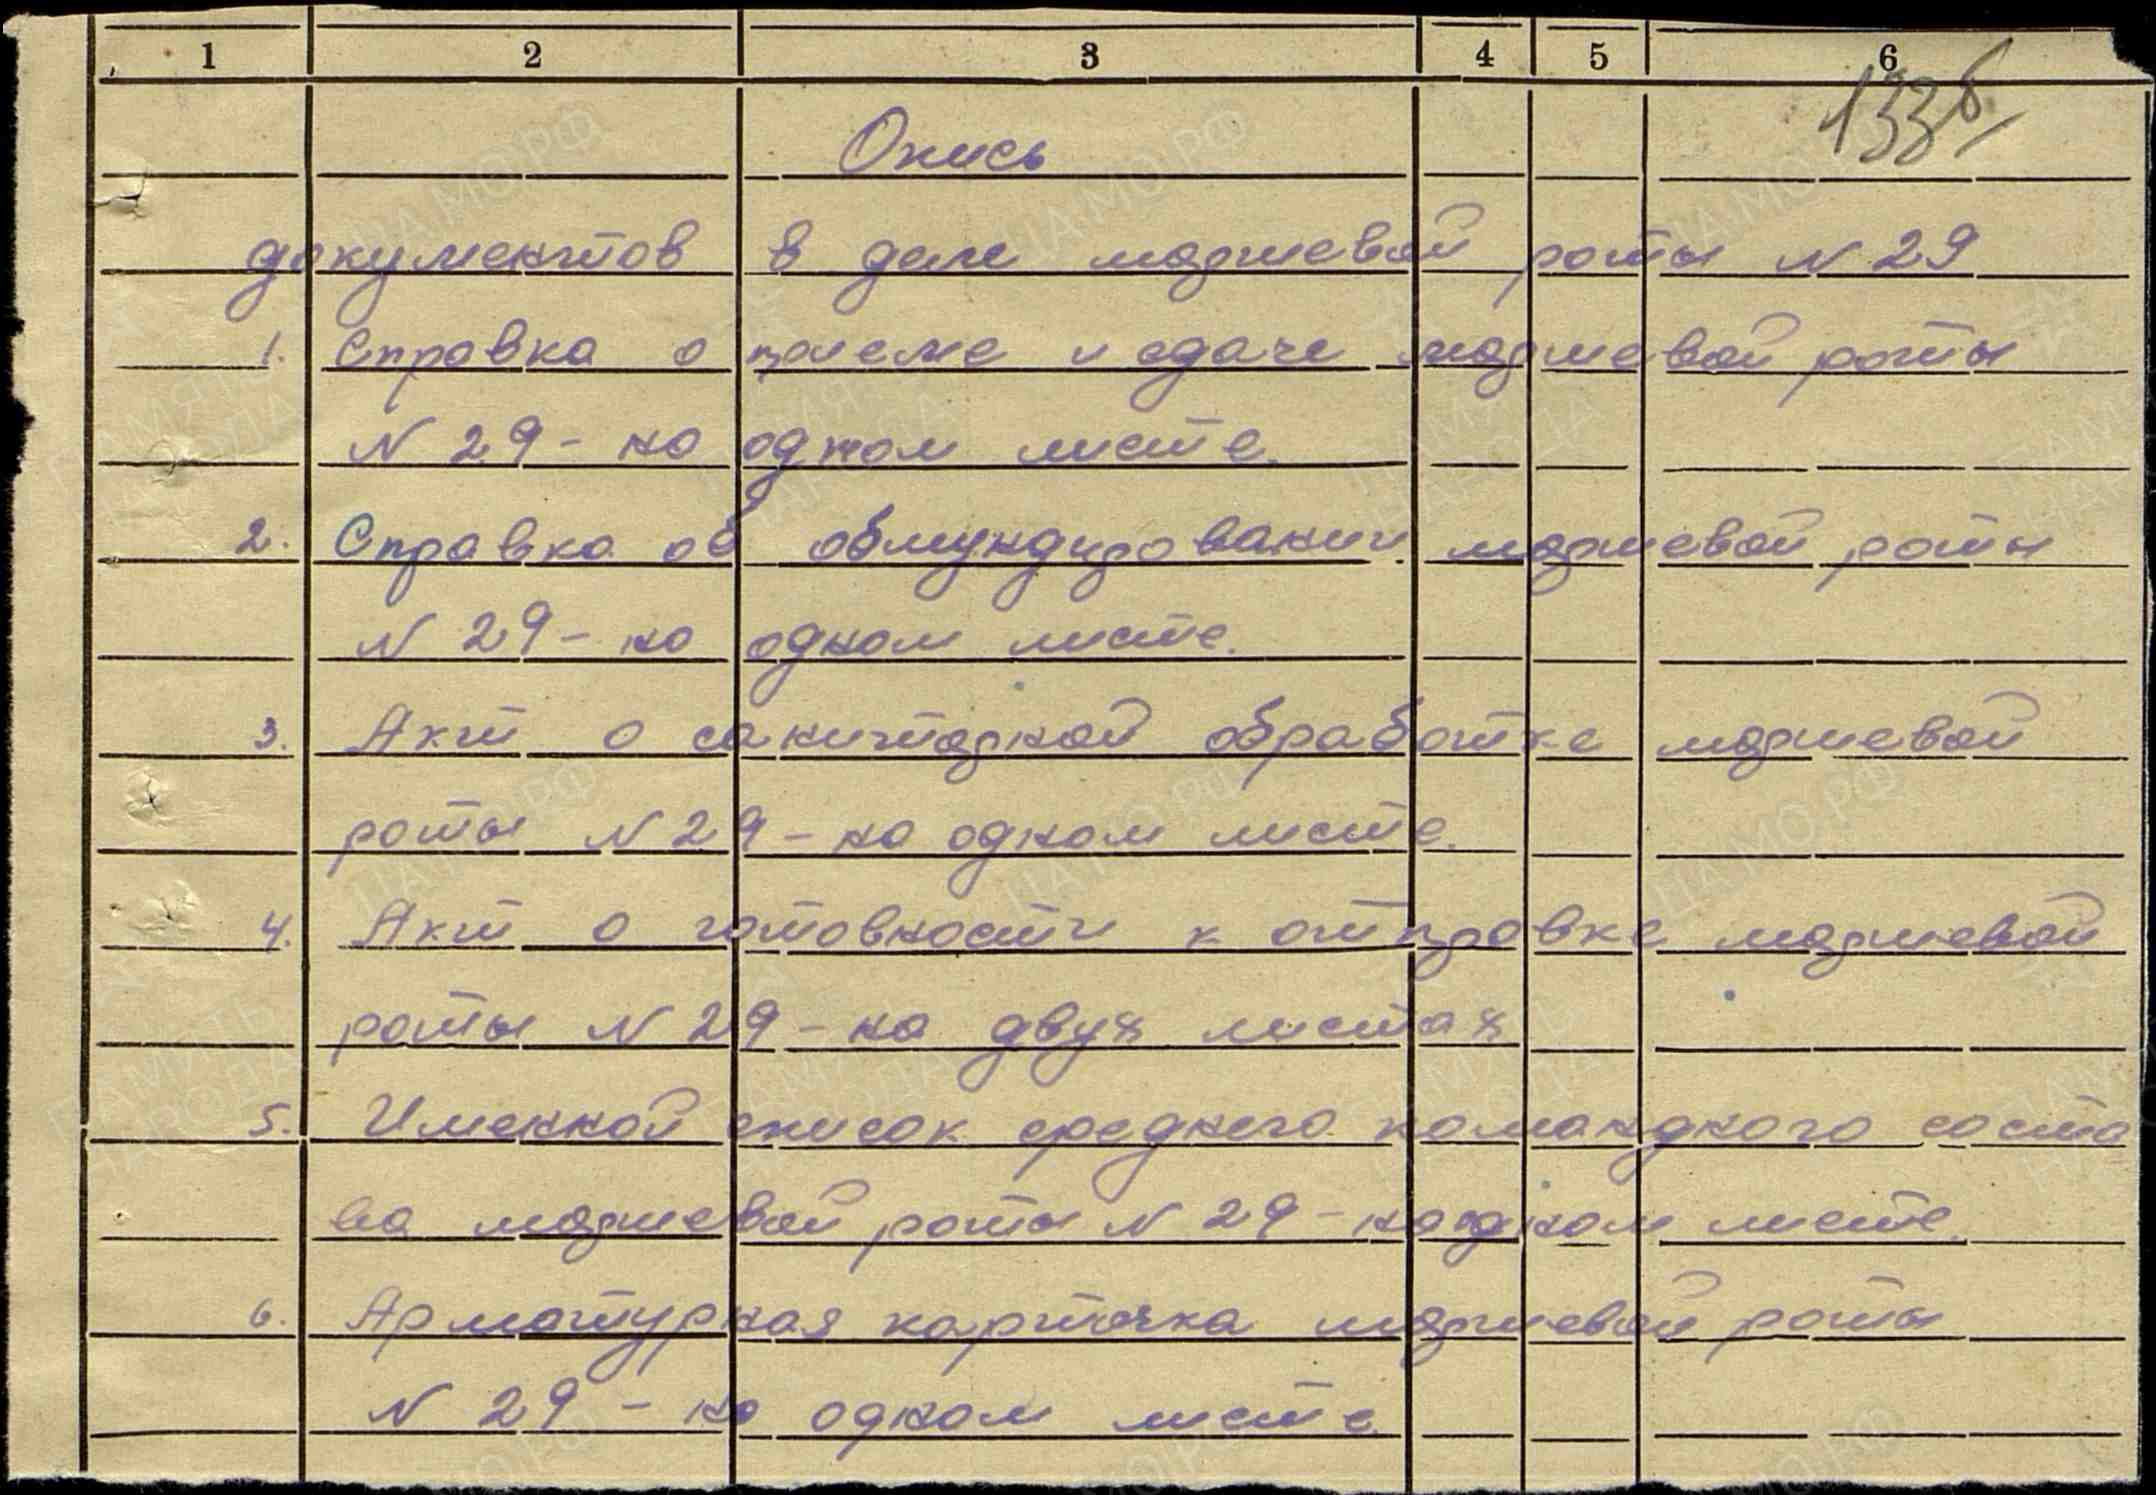 1 2 3 4 5 6
Опись
документов в деле маршевой роты N 29
1. Справка о приеме и сдаче маршевой роты
N 29 - на одном листе.
2. Справка об обмундировании маршевой роты
N 29 - на одном листе.
3. Акт о санитарной обработке маршевой
роты N 29 - на одном листе.
4. Акт о готовности к отправке маршевой
роты N 29 - на двух листах
5. Именной список среднего командного соста
ва маршевой роты N 29 - на одном листе.
6. Арматурная карточка маршевой роты
N 29 - на одном листе.